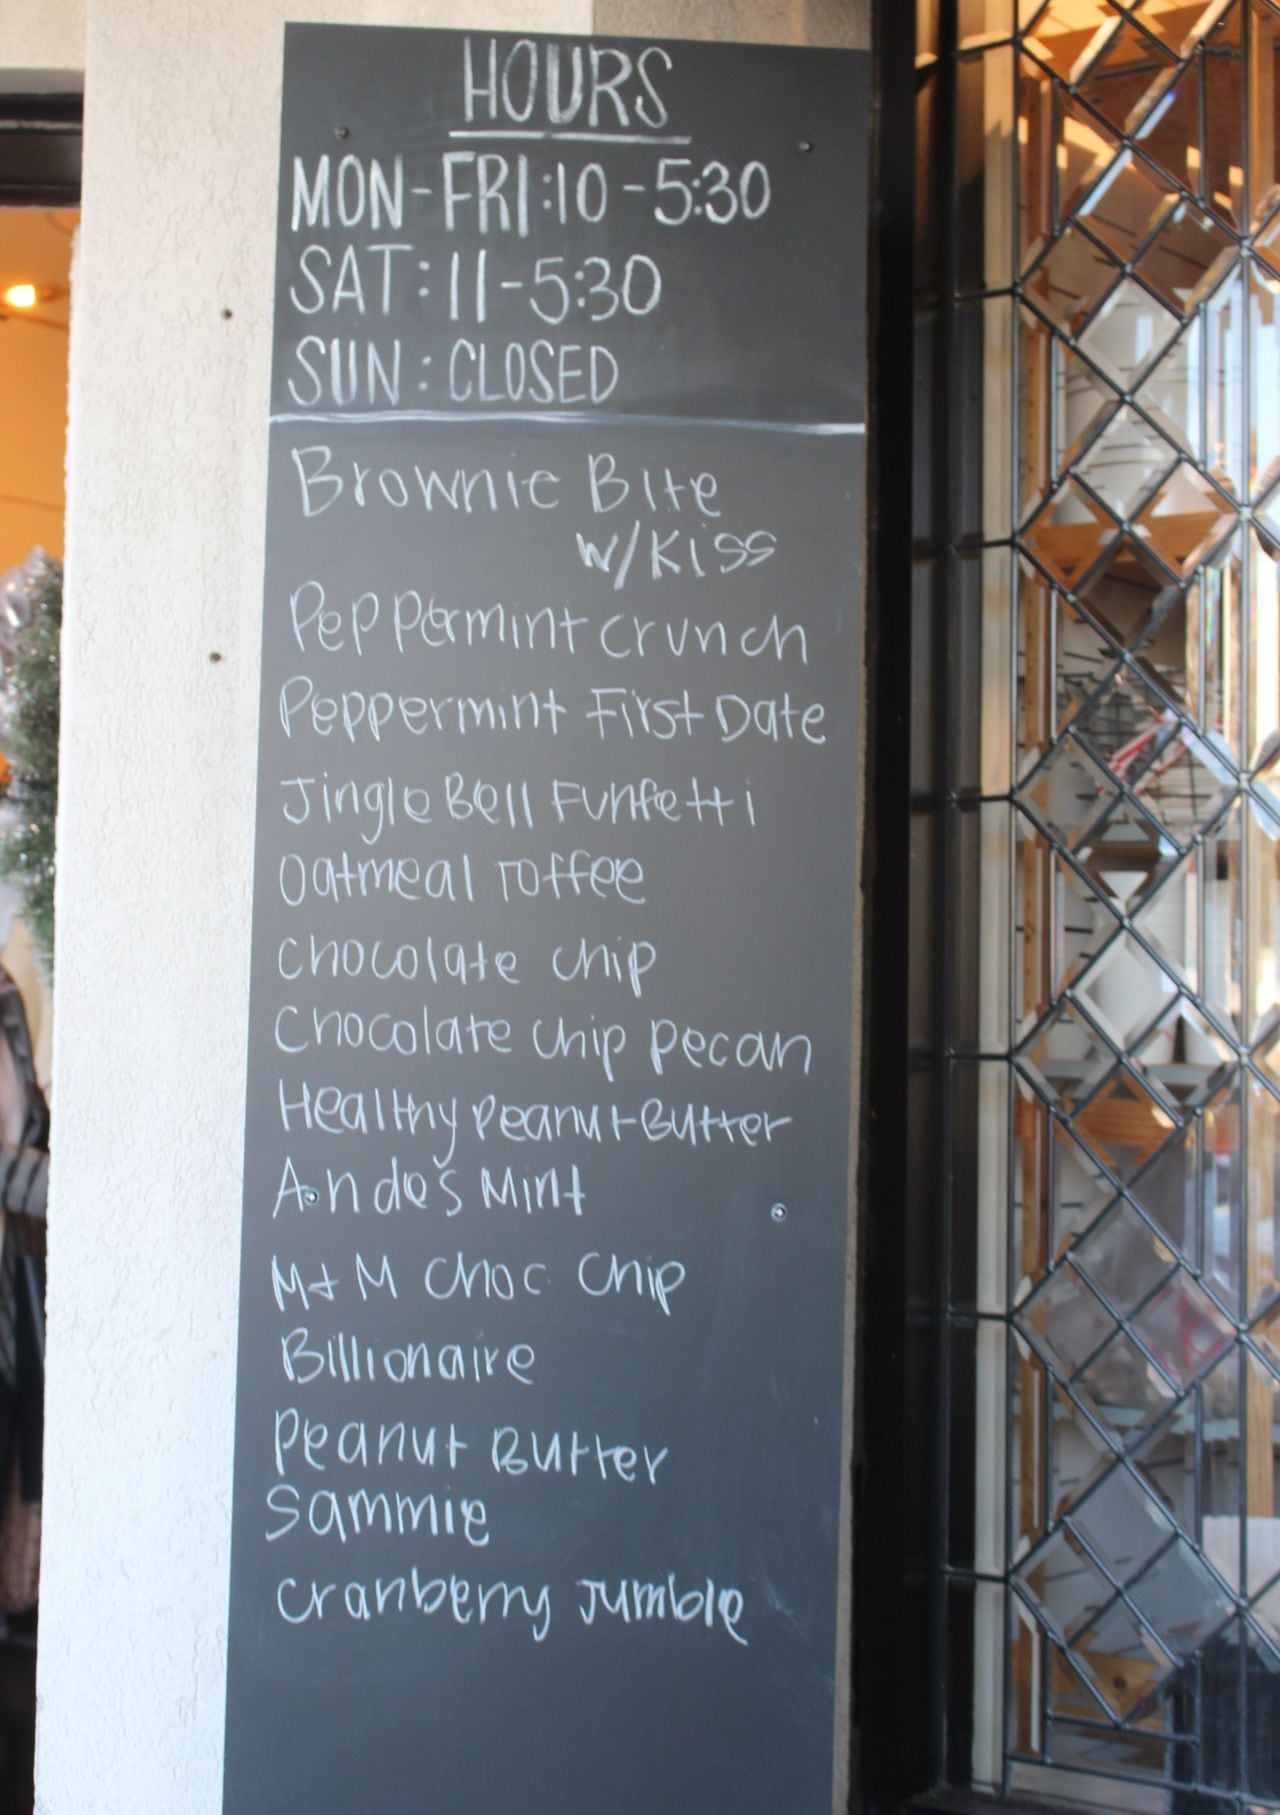 HOURS
MON-FRI:10-5:30
SAT:11-5:30
SUN:CLOSED
Brownie Bite
w/Kiss
Peppermint crunch
Peppermint First Date
Jingle Bell Funfetti
Oatmeal Toffee
Chocolate chip
Chocolate chip pecan
Healthy Peanut Butter
Ande's Mint
M+M Choc Chip
Billionaire
Peanut Butter
Sammie
Cranberry Jumble